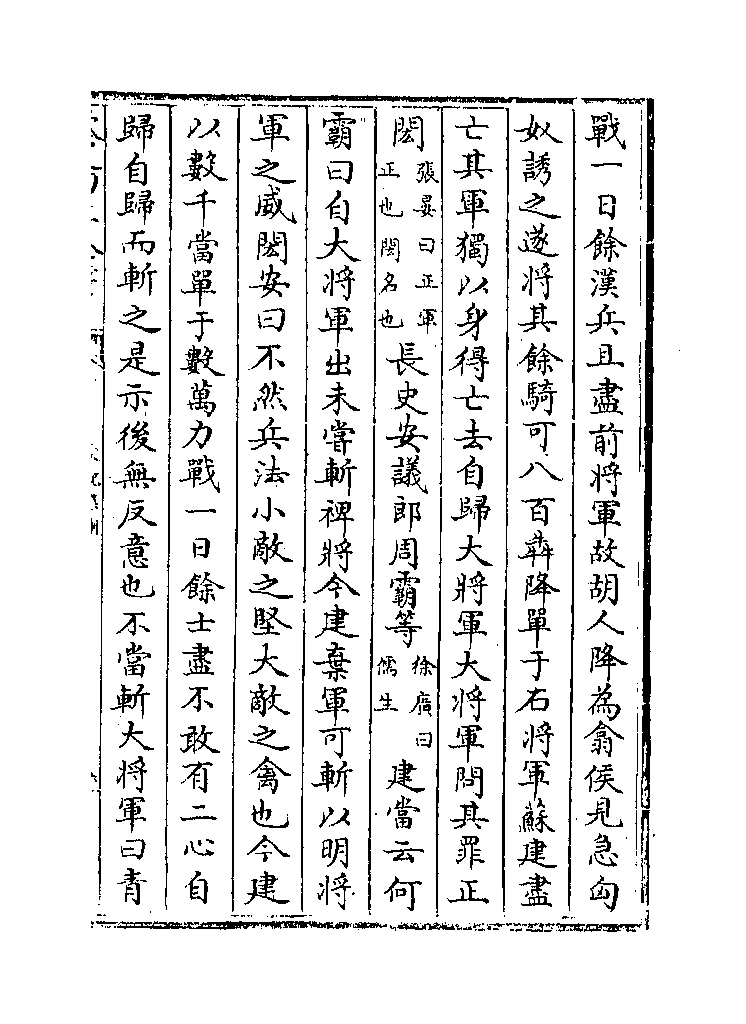 戰一日餘漢兵且盡前將軍故胡人降為翕侯見急匈
奴誘之遂將其餘騎可八百犇降單于右將軍蘇建盡
亡其軍獨以身得亡去自歸大將軍大將軍問其罪正
閎張晏曰正軍正也閎名也長史安議郎周霸等徐廣曰儒生建當云何
霸曰自大將軍出未嘗斬裨將今建棄軍可斬以明將
軍之威閎安曰不然兵法小敵之堅大敵之禽也今建
以數千當單于數萬力戰一日餘士盡不敢有二心自
歸自歸而斬之是示後無反意也不當斬大將軍曰青